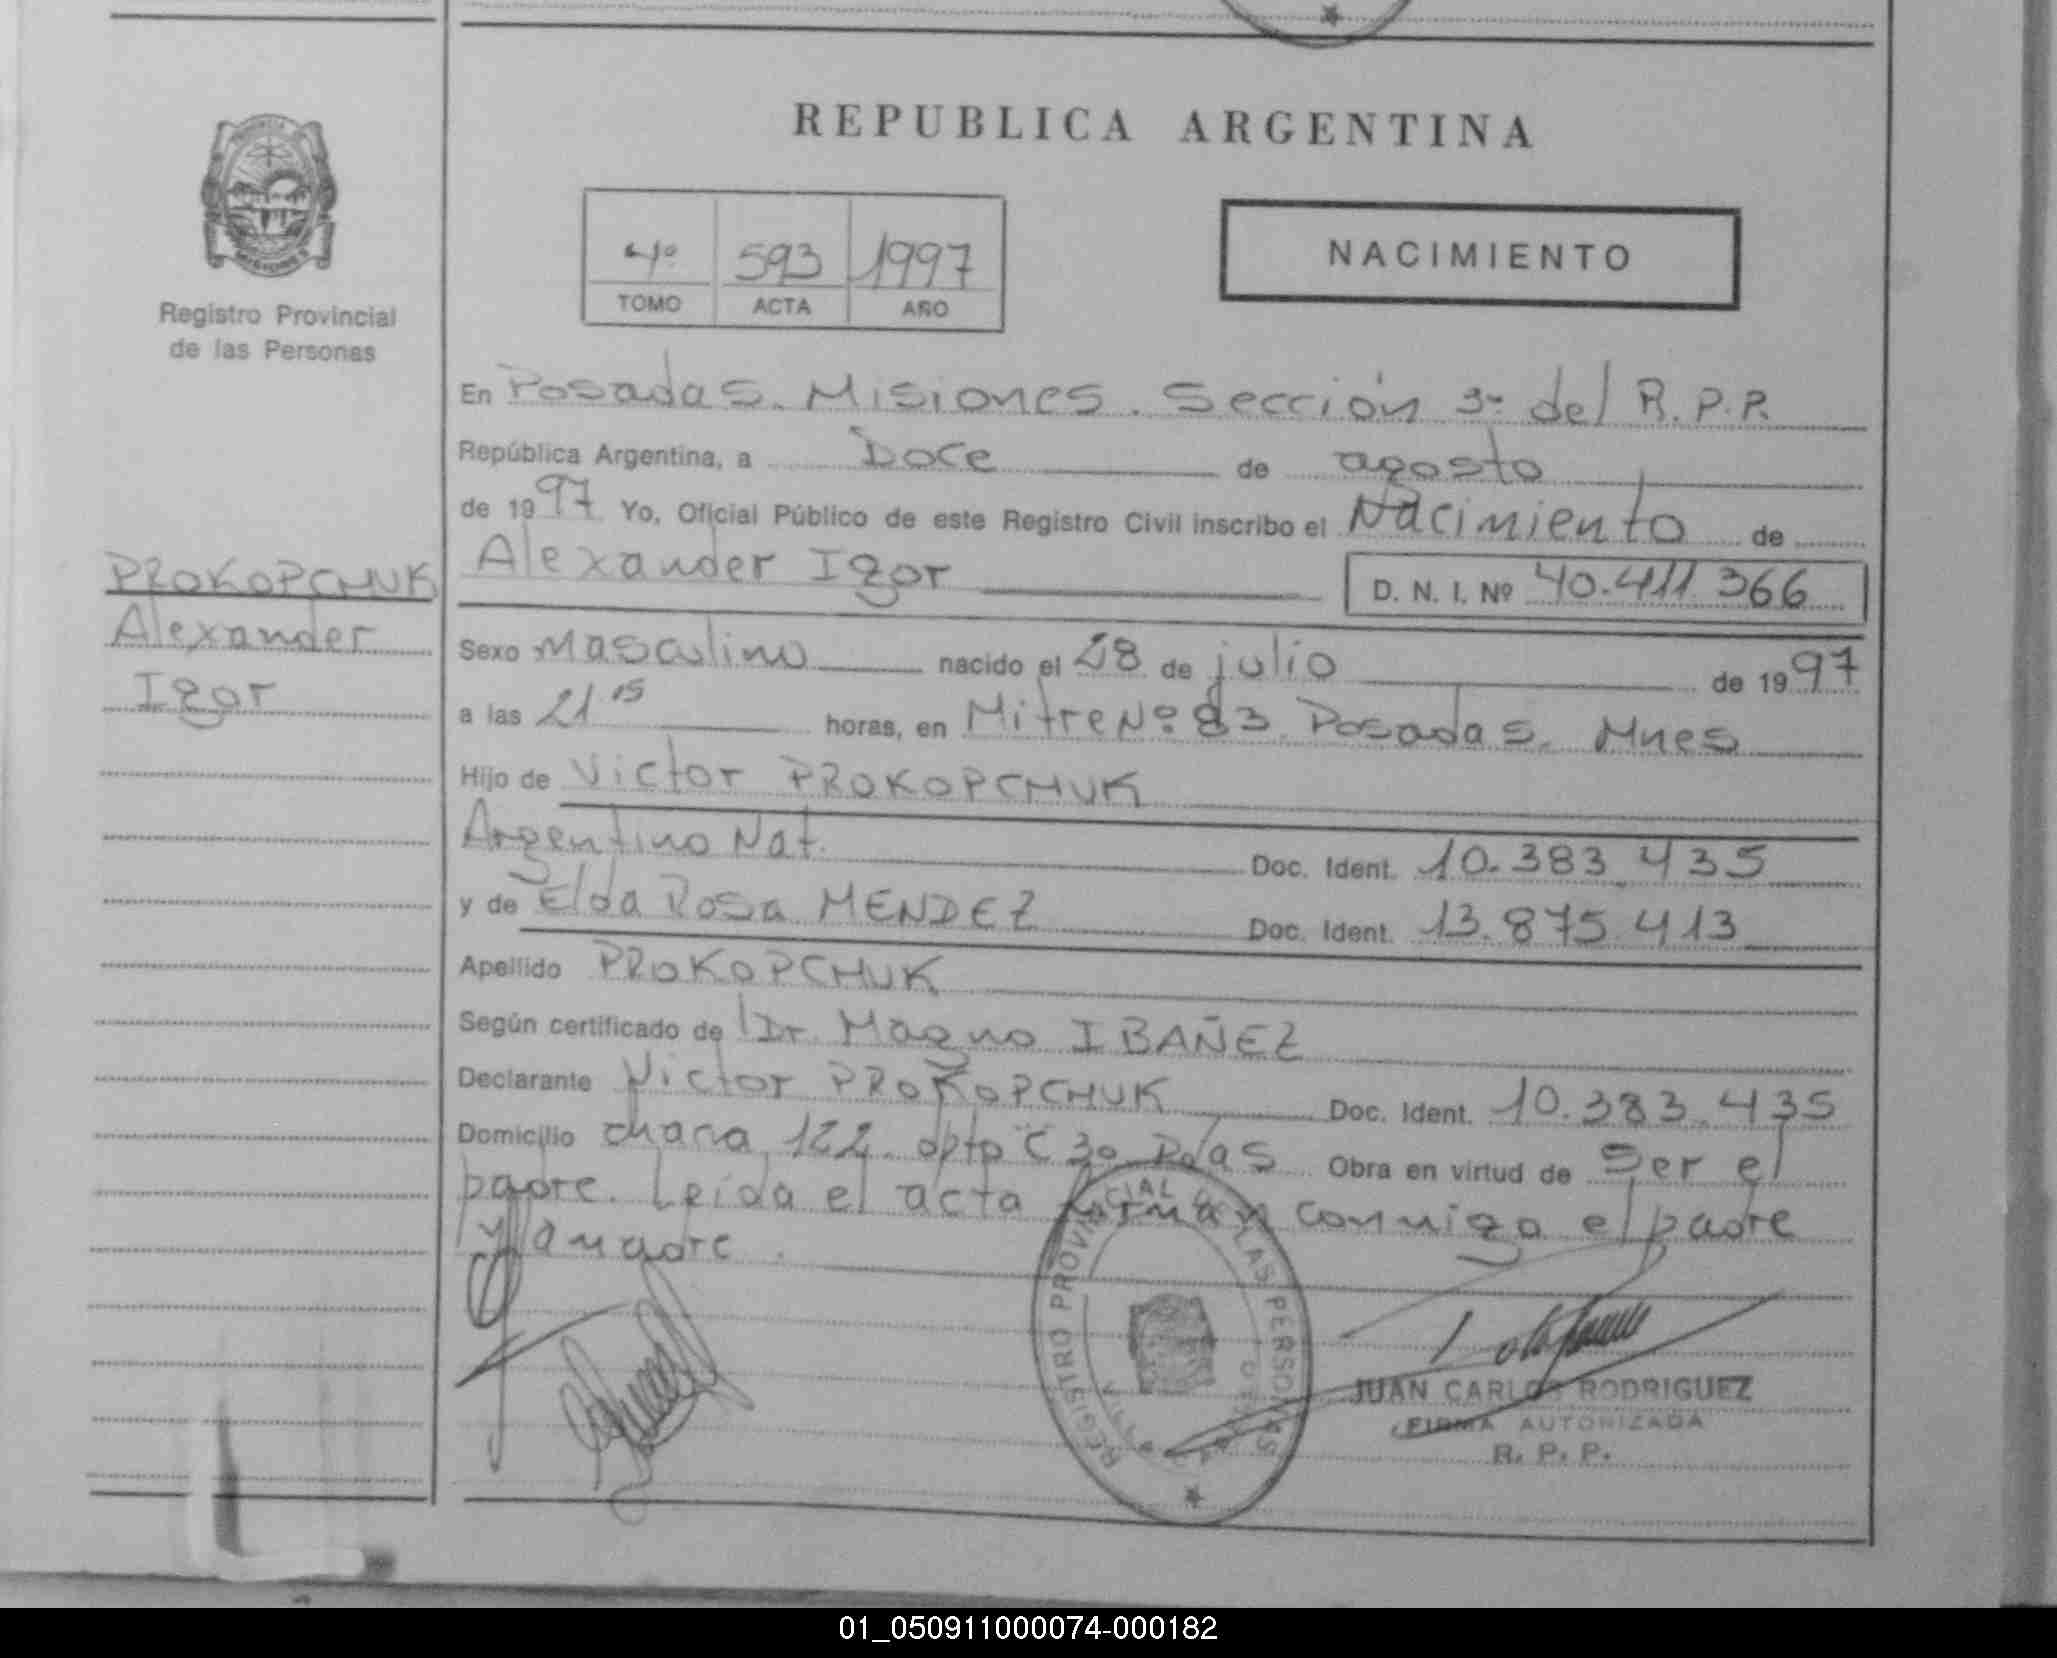 REPUBLICA ARGENTINA
4º 593 1997
TOMO ACTA AÑO
NACIMIENTO
PROVINCIA
MISIONES
Registro Provincial
de las Personas
PROKOPCHUK
Alexander
Igor
En Posadas. Misiones. Sección 3ª del R.P.P.
República Argentina, a Doce de agosto
de 1997 Yo, Oficial Público de este Registro Civil inscribo el Nacimiento de
Alexander Igor D. N. I. Nº 40.411.366
Sexo Masculino nacido el 28 de julio de 1997
a las 21 15 horas, en Mitre Nº 83 Posadas. Mnes
Hijo de Victor PROKOPCHUK
Argentino Nat. Doc. Ident. 10.383.435
y de Elda Rosa MENDEZ Doc. Ident. 13.875.413
Apellido PROKOPCHUK
Según certificado de Dr. Magno IBAÑEZ
Declarante Victor PROKOPCHUK Doc. Ident. 10.383.435
Domicilio chacra 122 dpto C 3º Pdas Obra en virtud de Ser el
padre. Leida el acta firman conmigo el padre
y la madre.
REGISTRO PROVINCIAL DE LAS PERSONAS
JUAN CARLOS RODRIGUEZ
FIRMA AUTORIZADA
R. P. P.
01_050911000074-000182